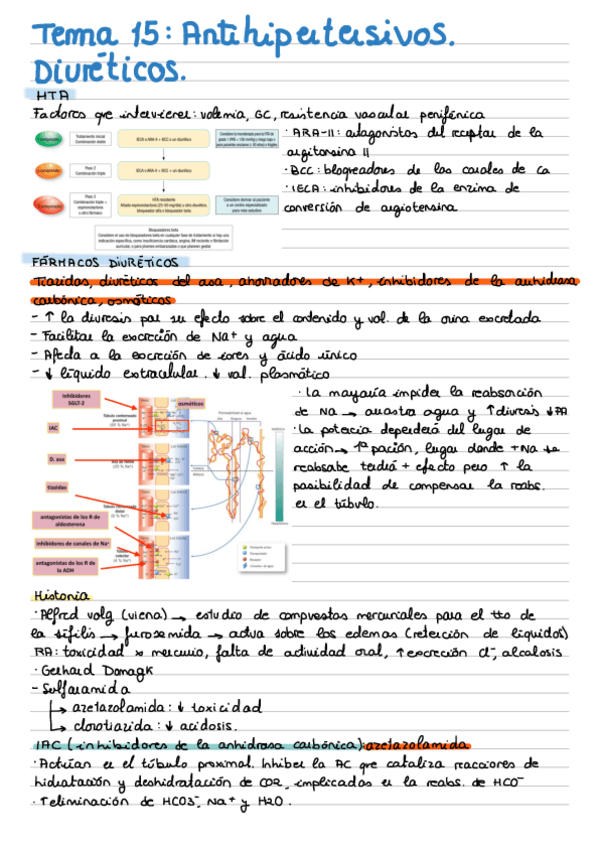 Tema 15: Antihipertensivos.
Diuréticos.
HTA
Factores que intervienen: volemia, GC, resistencia vascular periférica
Tratamiento inicial
Combinación doble
IECA o ARA-II + BCC o un diurético
Paso 2
Combinación triple
IECA o ARA-II + BCC + un diurético
Paso 3
Combinación triple +
espironolactona
u otro fármaco
HTA resistente
Añada espironolactona (25-50 mg/día) u otro diurético,
bloqueador alfa o bloqueador beta
Considere derivar al paciente
a un centro especializado
para más estudios
Bloqueadores beta
Considere el uso de bloqueadores beta en cualquier fase de tratamiento si hay una
indicación específica, como insuficiencia cardiaca, angina, IM reciente o fibrilación
auricular, o para jóvenes embarazadas o que planeen gestar
· ARA-II: antagonistas del receptor de la
angiotensina II
· BCC: bloqueadores de los canales de Ca
· IECA: inhibidores de la enzima de
conversión de angiotensina
FÁRMACOS DIURÉTICOS
Tiazidas, diuréticos del asa, ahorradores de K+, inhibidores de la anhidrasa
carbónica, osmóticos
- ↑ la diuresis por su efecto sobre el contenido y vol. de la orina excretada
- Facilitar la excreción de Na+ y agua
- Afecta a la excreción de iones y ácido único
- ↓ líquido extracelular. ↓ vol. plasmático
inhibidores
SGLT-2
osmóticos
IAC
D. asa
tiazidas
antagonistas de los R de
aldosterona
inhibidores de canales de Na+
antagonistas de los R de
la ADH
· La mayoría impiden la reabsorción
de Na → arrastra agua y ↑ diuresis ↓PA
· La potencia dependerá del lugar de
acción → 1ª porción, lugar donde + Na se
reabsorbe tendrá + efecto pero ↑ la
posibilidad de compensar la reabs.
en el túbulo.
Historia
· Alfred volg (viena) → estudio de compuestos mercuriales para el tto de
la sífilis → furosemida → actua sobre los edemas (retención de líquidos)
RA: toxicidad x mercurio, falta de actividad oral, ↑ excreción Cl⁻, alcalosis
· Gerhard Domagk
- Sulfanamida
↳ azetazolamida: ↓ toxicidad
↳ clorotiazida: ↓ acidosis.
IAC (inhibidores de la anhidrasa carbónica): azetazolamida
· Actúan en el túbulo proximal. Inhiben la AC que cataliza reacciones de
hidratación y deshidratación de CO2, implicadas en la reabs. de HCO⁻
· ↑ eliminación de HCO3⁻, Na+ y H2O.